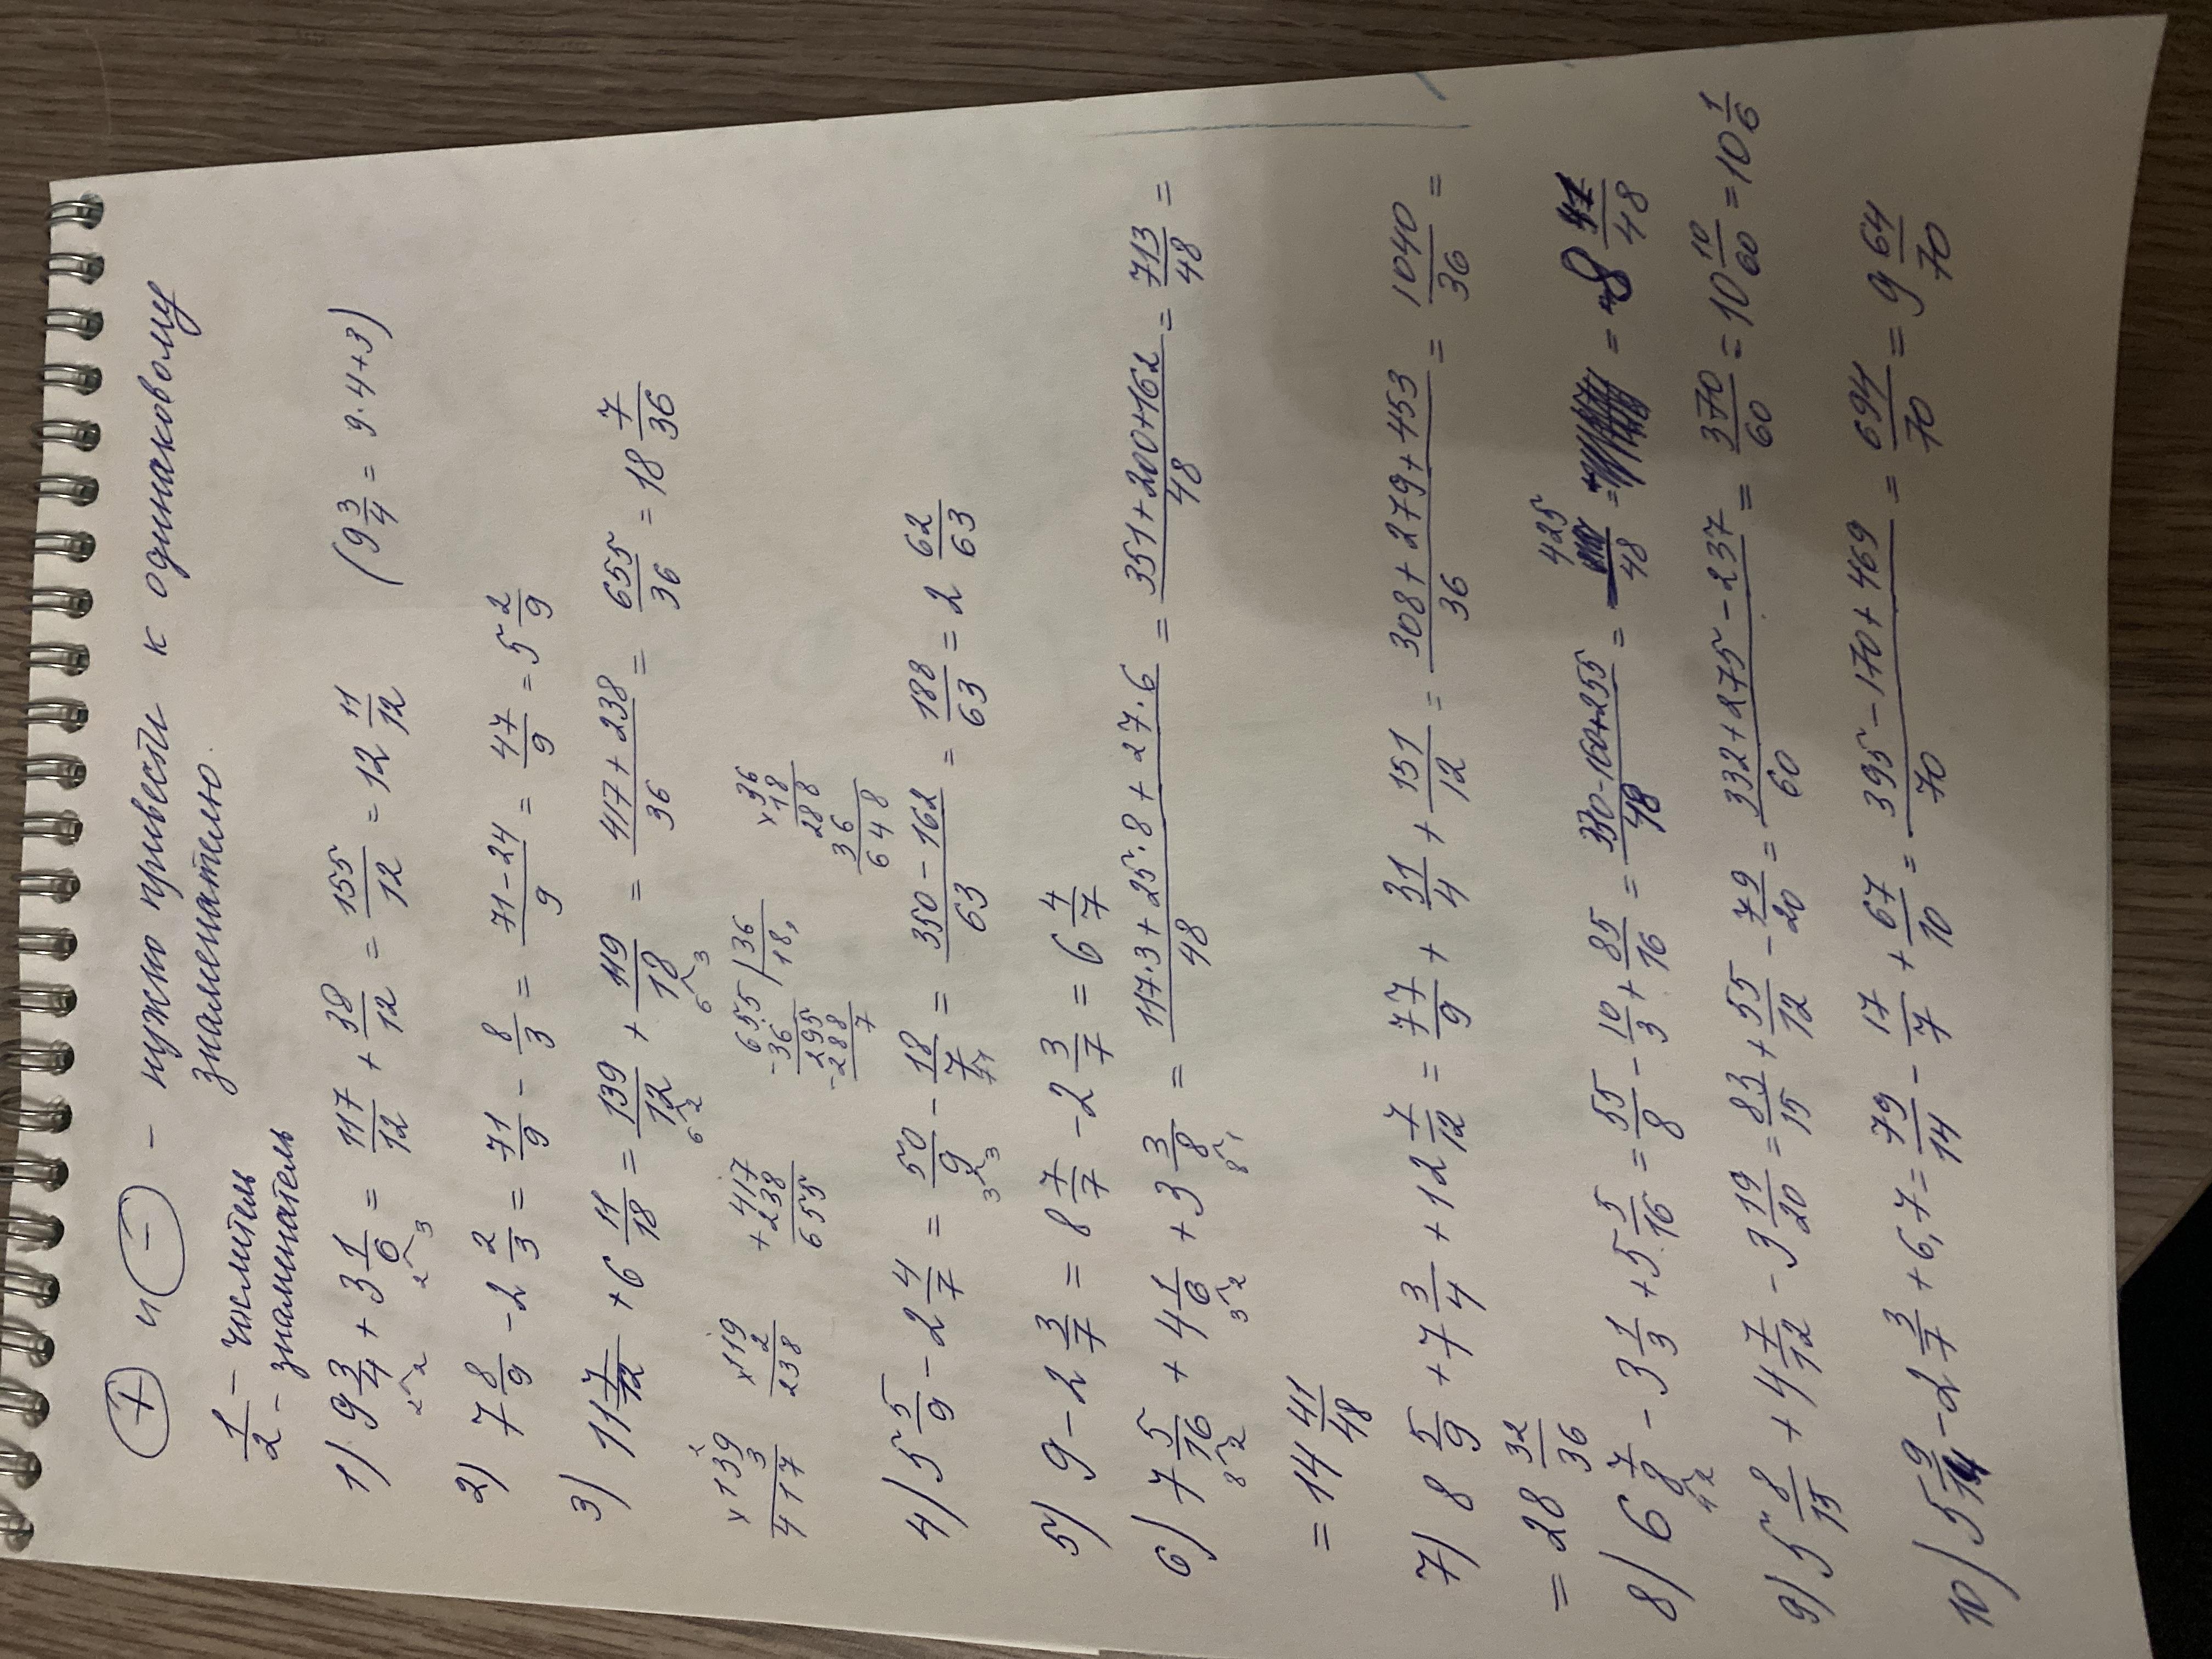 (+) и (−) − нужно привести к одинаковому
знаменателю.
1/2 − числитель
− знаминатель
1) 9 3/4 + 3 1/6 = 117/12 + 38/12 = 155/12 = 12 11/12 (9 3/4 = 9·4+3)
2 2 2 3
2) 7 8/9 − 2 2/3 = 71/9 − 8/3 = 71−24/9 = 47/9 = 5 2/9
3) 11 7/12 + 6 11/18 = 139/12 + 119/18 = 417+238/36 = 655/36 = 18 7/36
6 2 6 3
×139 3 417 ×119 2 238 +417 238 655 655 | 36 18, −36 295 −288 7 ×36 18 288 36 648
4) 5 5/9 − 2 4/7 = 50/9 − 18/7 = 350−162/63 = 188/63 = 2 62/63
3 3
5) 9 − 2 3/7 = 8 7/7 − 2 3/7 = 6 4/7
6) 7 5/16 + 4 1/6 + 3 3/8 = 117·3+25·8+27·6/48 = 351+200+162/48 = 713/48 =
8 2 3 2 8 1
= 14 41/48
7) 8 5/9 + 7 3/4 + 12 7/12 = 77/9 + 31/4 + 151/12 = 308+279+453/36 = 1040/36 =
= 28 32/36
8) 6 7/8 − 3 1/3 + 5 5/16 = 55/8 − 10/3 + 85/16 = 330−160+255/48 = 425/48 = = 8 41/48
4 2
9) 5 8/15 + 4 7/12 − 3 19/20 = 83/15 + 55/12 − 79/20 = 332+275−237/60 = 370/60 = 10 10/60 = 10 1/6
10) 5 9/14 − 2 3/7 + 6,7 = 79/14 − 17/7 + 67/10 = 395−170+469/70 = 694/70 = 9 64/70